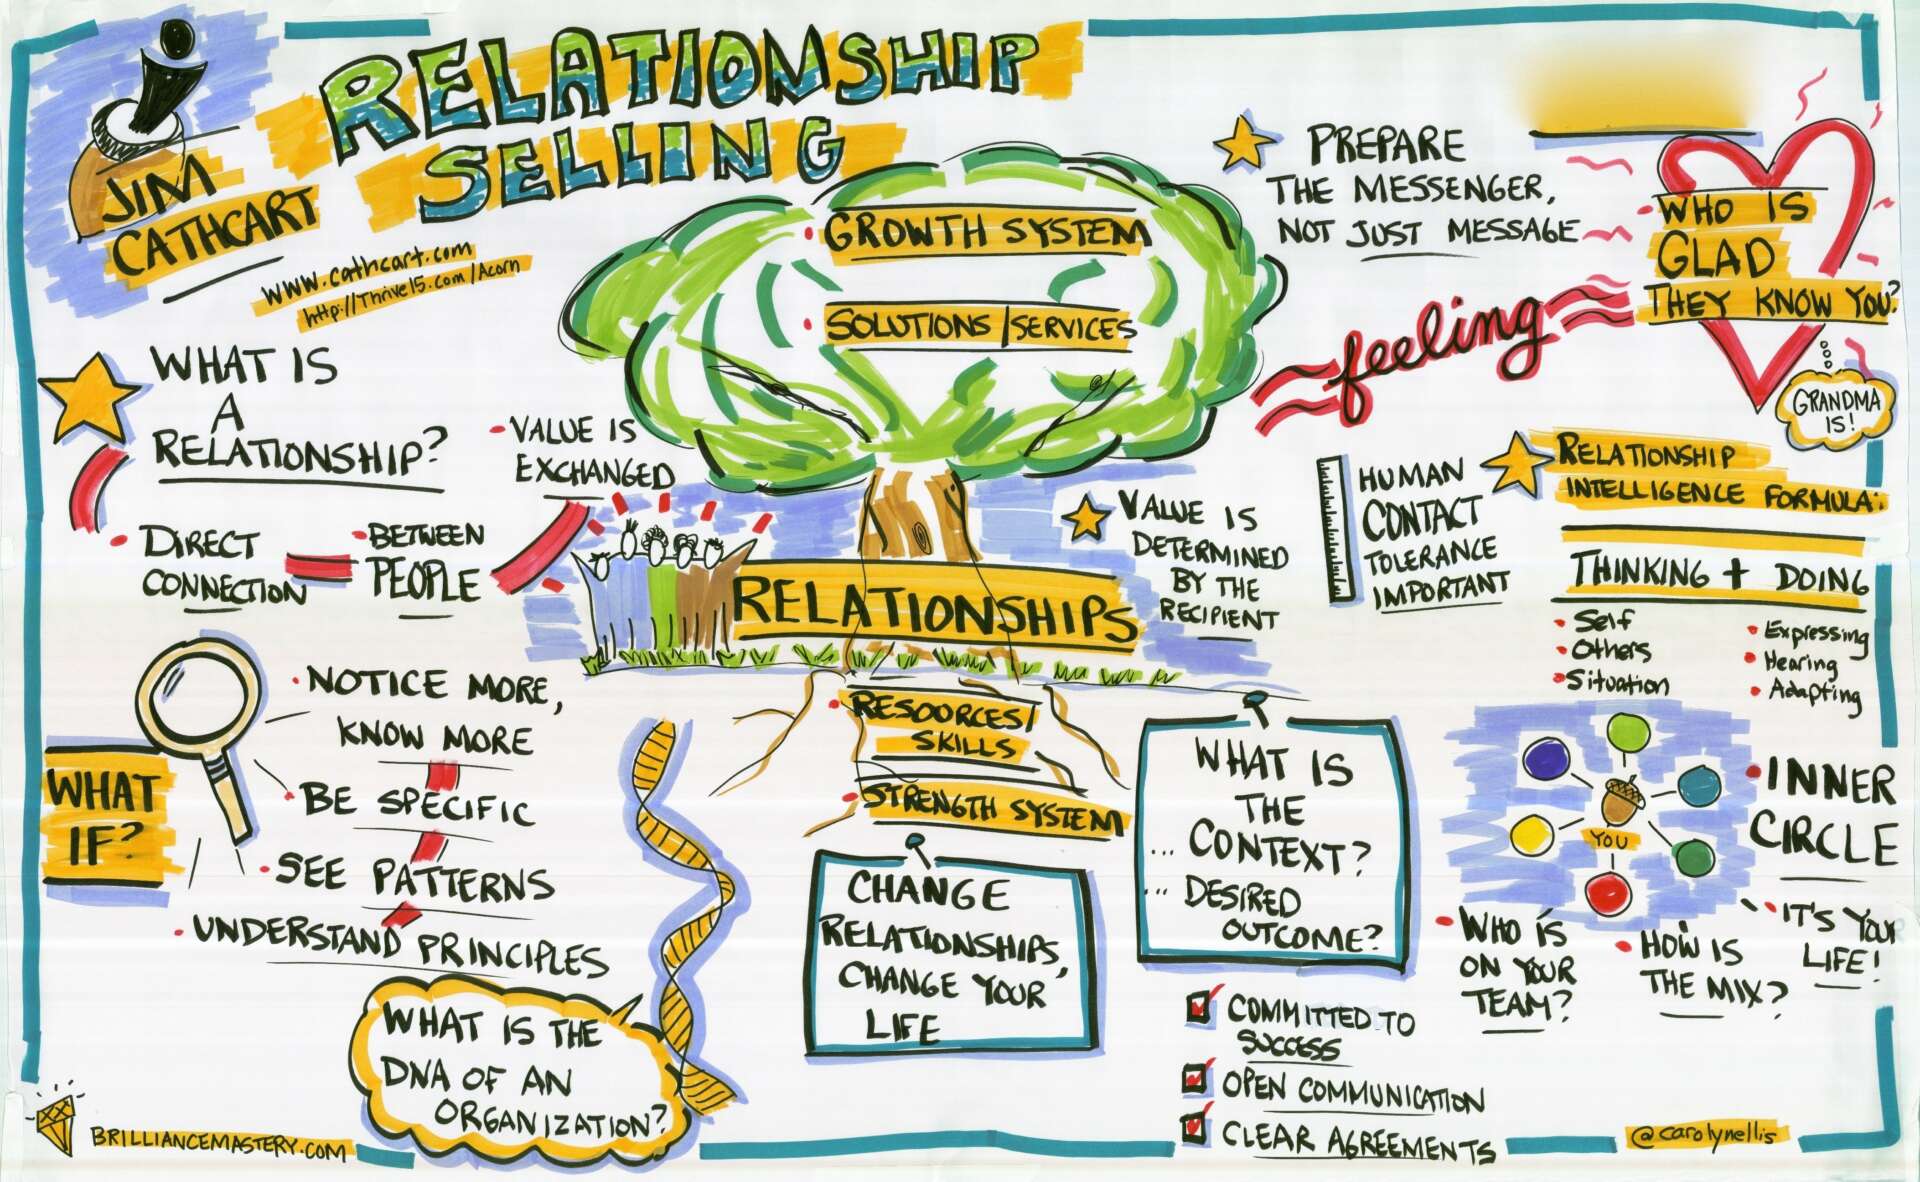 RELATIONSHIP
SELLING
JIM
CATHCART
www.cathcart.com
http://Thrive15.com/Acorn
WHAT IS
A
RELATIONSHIP?
DIRECT
CONNECTION
BETWEEN
PEOPLE
VALUE IS
EXCHANGED
GROWTH SYSTEM
SOLUTIONS/SERVICES
RELATIONSHIPS
RESOURCES/
SKILLS
STRENGTH SYSTEM
VALUE IS
DETERMINED
BY THE
RECIPIENT
PREPARE
THE MESSENGER,
NOT JUST MESSAGE
feeling
WHO IS
GLAD
THEY KNOW YOU?
GRANDMA
IS!
HUMAN
CONTACT
TOLERANCE
IMPORTANT
RELATIONSHIP
INTELLIGENCE FORMULA:
THINKING + DOING
Self
Others
Situation
Expressing
Hearing
Adapting
WHAT
IF?
NOTICE MORE,
KNOW MORE
BE SPECIFIC
SEE PATTERNS
UNDERSTAND PRINCIPLES
WHAT IS THE
DNA OF AN
ORGANIZATION?
CHANGE
RELATIONSHIPS,
CHANGE YOUR
LIFE
WHAT IS
THE
... CONTEXT?
... DESIRED
OUTCOME?
COMMITTED TO
SUCCESS
OPEN COMMUNICATION
CLEAR AGREEMENTS
YOU
INNER
CIRCLE
WHO IS
ON YOUR
TEAM?
HOW IS
THE MIX?
IT'S YOUR
LIFE!
BRILLIANCEMASTERY.COM
@carolynellis